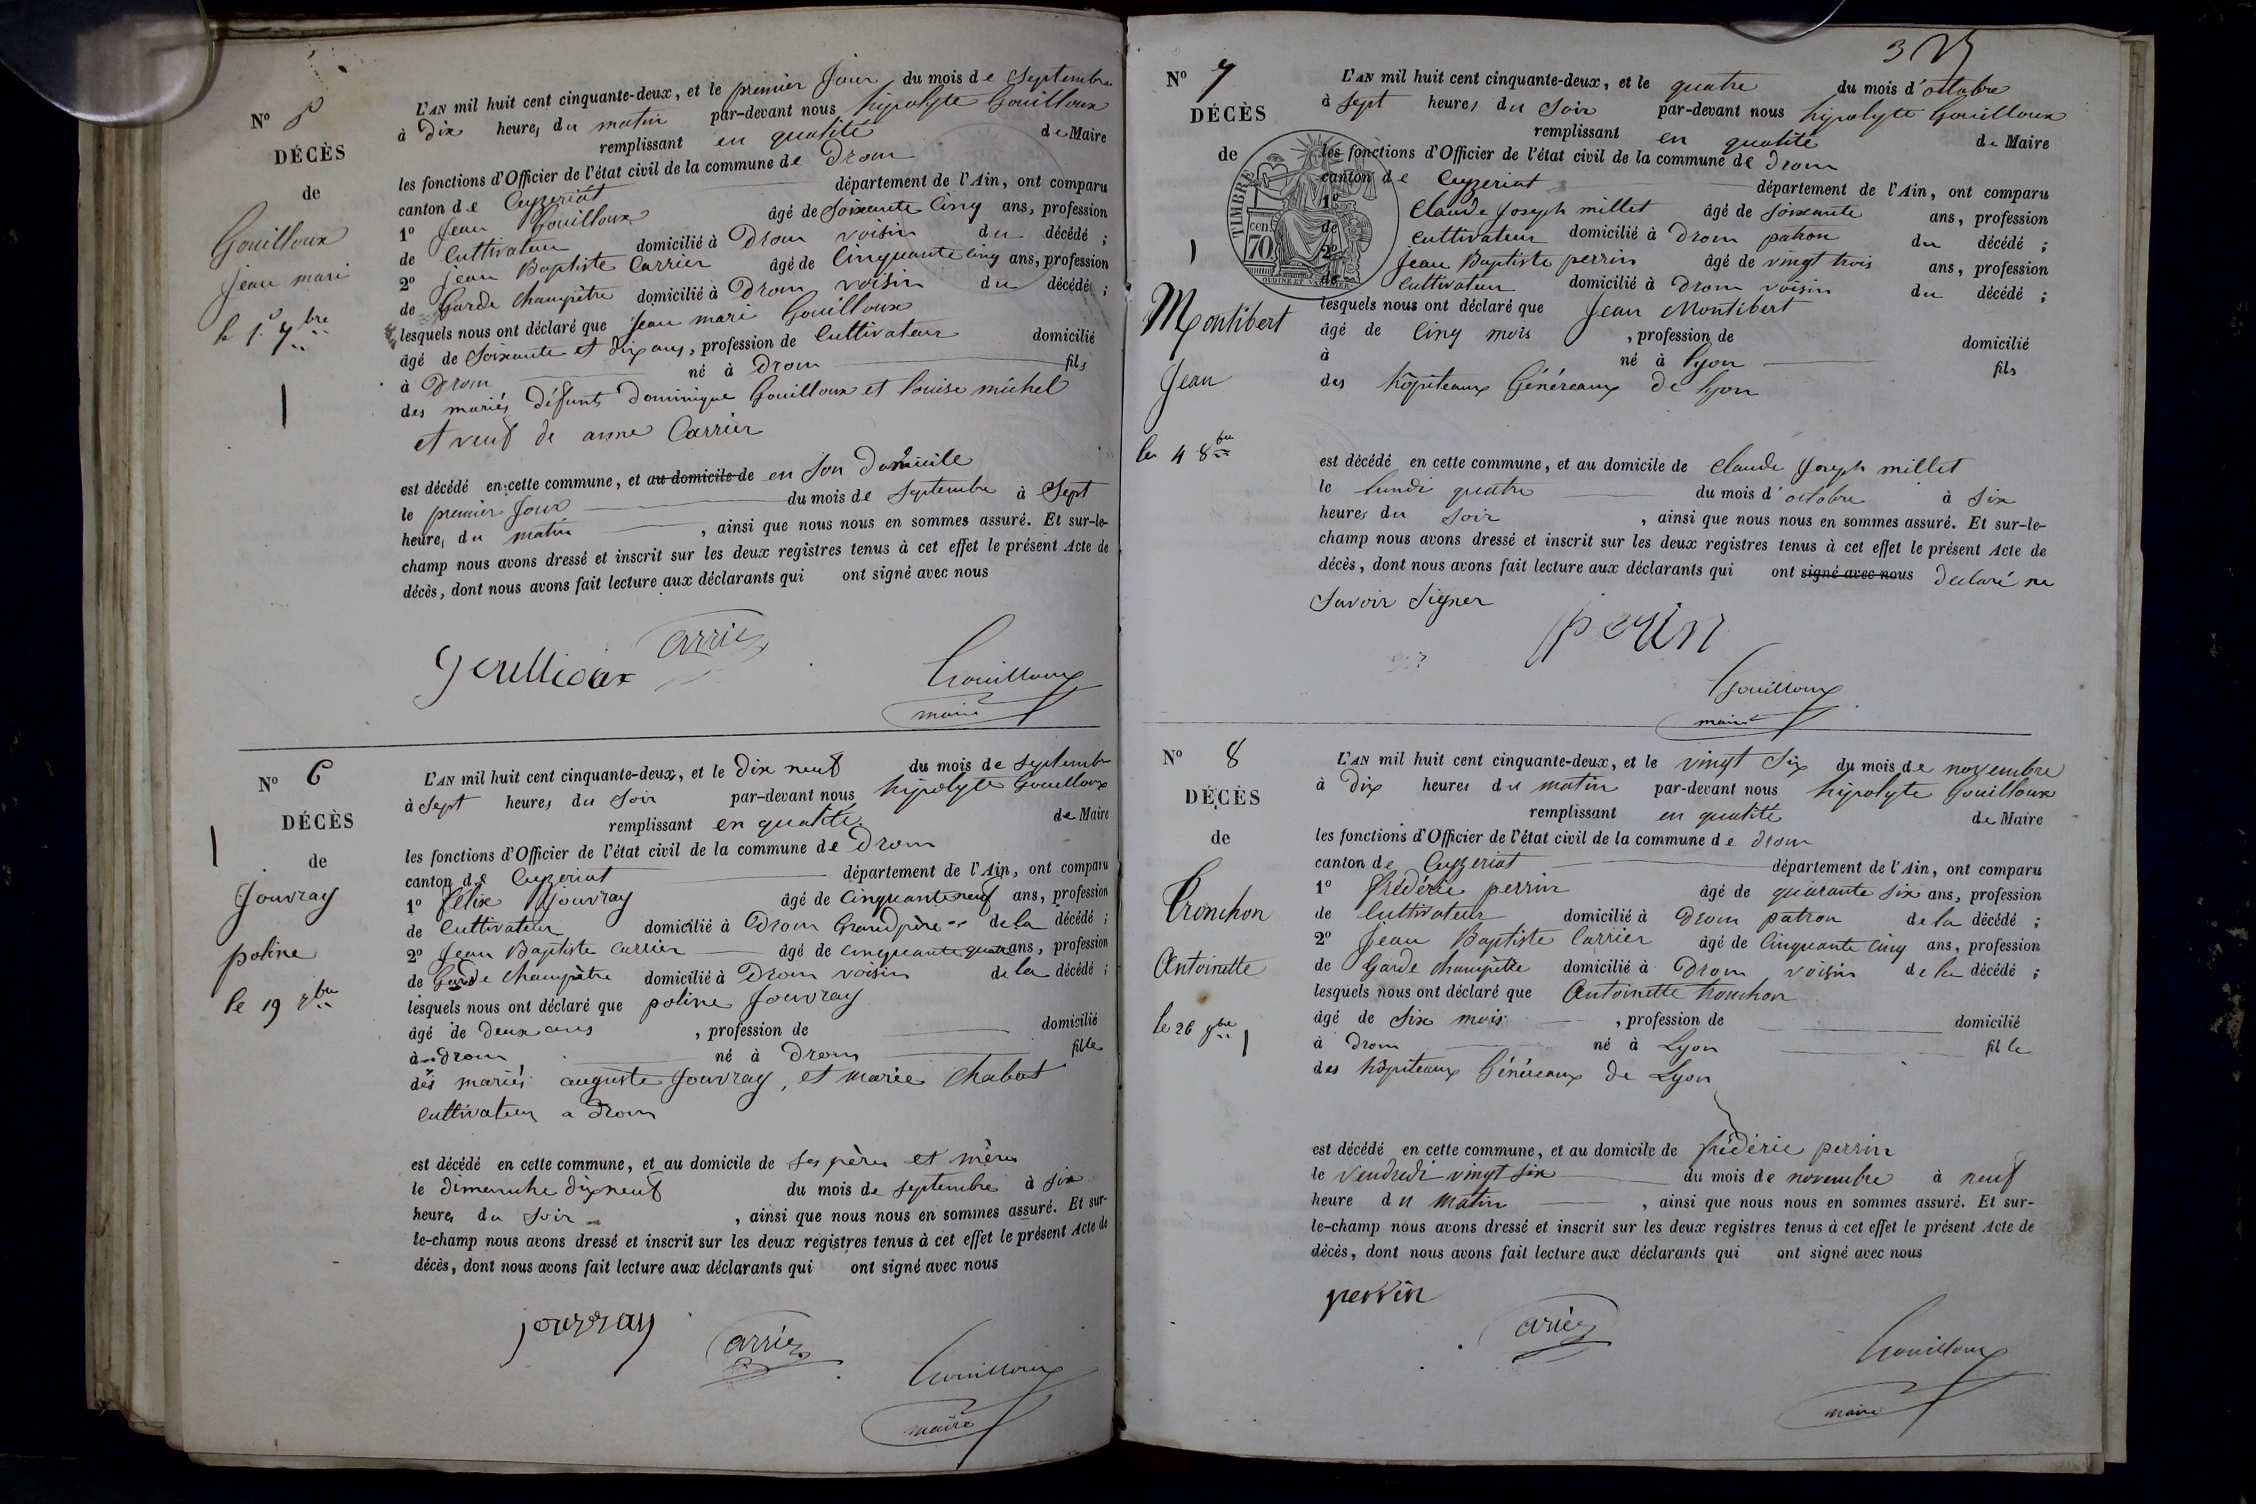 N° 5
DÉCÈS
de
Gouilloux
Jean mari
le 1er 7bre
L'AN mil huit cent cinquante-deux, et le premier Jour du mois de Septembre
à Dix heures du matin par-devant nous hipolyte Gouilloux
remplissant en qualité de Maire
les fonctions d'Officier de l'état civil de la commune de Drom
canton de Ceyzeriat département de l'Ain, ont comparu
1° Jean Gouilloux âgé de Soixante Cinq ans, profession
de Cultivateur domicilié à Drom voisin du décédé ;
2° Jean Baptiste Carrier âgé de Cinquante cinq ans, profession
de Garde Champêtre domicilié à Drom voisin du décédé ;
lesquels nous ont déclaré que Jean mari Gouilloux
âgé de Soixante et dix ans, profession de Cultivateur domicilié
à Drom né à Drom fils
des mariés Défunts Dominique Gouilloux et Louise michel
et veuf de anne Carrier
est décédé en cette commune, et au domicile de en Son Domicile
le premier Jour du mois de Septembre à Sept
heures du matin , ainsi que nous nous en sommes assuré. Et sur-le-
champ nous avons dressé et inscrit sur les deux registres tenus à cet effet le présent Acte de
décès, dont nous avons fait lecture aux déclarants qui ont signé avec nous
gouillioux carrier
Gouilloux
maire
N° 6
DÉCÈS
de
Jouvray
poline
le 19 7bre
L'AN mil huit cent cinquante-deux, et le Dix neuf du mois de Septembre
à Sept heures du Soir par-devant nous hipolyte Gouilloux
remplissant en qualité de Maire
les fonctions d'Officier de l'état civil de la commune de Drom
canton de Ceyzeriat département de l'Ain, ont comparu
1° félix Jouvray âgé de Cinquante neuf ans, profession
de Cultivateur domicilié à Drom Grand père de la décédé ;
2° Jean Baptiste Carrier âgé de cinquante quatre ans, profession
de Garde Champêtre domicilié à Drom voisin de la décédé ;
lesquels nous ont déclaré que poline Jouvray
âgé de Deux ans , profession de domicilié
à Drom né à Drom fille
des mariés auguste Jouvray, et marie Chabot
Cultivateur a Drom
est décédé en cette commune, et au domicile de Ses pères et mères
le Dimanche dix neuf du mois de Septembre à Six
heures du Soir , ainsi que nous nous en sommes assuré. Et sur-
le-champ nous avons dressé et inscrit sur les deux registres tenus à cet effet le présent Acte de
décès, dont nous avons fait lecture aux déclarants qui ont signé avec nous
jouvray carrier
Gouilloux
maire
N° 7
DÉCÈS
de
Montibert
Jean
le 4 8bre
TIMBRE
70 cent.
L'AN mil huit cent cinquante-deux, et le quatre du mois d'octobre
à Sept heures du Soir par-devant nous hipolyte Gouilloux
remplissant en qualité de Maire
les fonctions d'Officier de l'état civil de la commune de Drom
canton de Ceyzeriat département de l'Ain, ont comparu
1° Claude Joseph millet âgé de Soixante ans, profession
de Cultivateur domicilié à Drom patron du décédé ;
2° Jean Baptiste perrin âgé de vingt trois ans, profession
de Cultivateur domicilié à Drom voisin du décédé ;
lesquels nous ont déclaré que Jean Montibert
âgé de Cinq mois , profession de domicilié
à né à Lyon fils
des hôpiteaux Généreaux de Lyon
est décédé en cette commune, et au domicile de Claude Joseph millet
le lundi quatre du mois d'octobre à Six
heures du Soir , ainsi que nous nous en sommes assuré. Et sur-le-
champ nous avons dressé et inscrit sur les deux registres tenus à cet effet le présent Acte de
décès, dont nous avons fait lecture aux déclarants qui ont signé avec nous déclaré ne
Savoir Signer
perin
Gouilloux
maire
N° 8
DÉCÈS
de
Tronchon
Antoinette
le 26 9bre
L'AN mil huit cent cinquante-deux, et le vingt Six du mois de novembre
à Dix heures du matin par-devant nous hipolyte Gouilloux
remplissant en qualité de Maire
les fonctions d'Officier de l'état civil de la commune de Drom
canton de Ceyzeriat département de l'Ain, ont comparu
1° frédéric perrin âgé de quarante six ans, profession
de Cultivateur domicilié à Drom patron de la décédé ;
2° Jean Baptiste Carrier âgé de Cinquante cinq ans, profession
de Garde champêtre domicilié à Drom voisin de la décédé ;
lesquels nous ont déclaré que Antoinette tronchon
âgé de Six mois , profession de domicilié
à Drom né à Lyon fille
des hôpiteaux Généreaux de Lyon
est décédé en cette commune, et au domicile de frédéric perrin
le vendredi vingt Six du mois de novembre à neuf
heure du matin , ainsi que nous nous en sommes assuré. Et sur-
le-champ nous avons dressé et inscrit sur les deux registres tenus à cet effet le présent Acte de
décès, dont nous avons fait lecture aux déclarants qui ont signé avec nous
perrin
carier
Gouilloux
maire